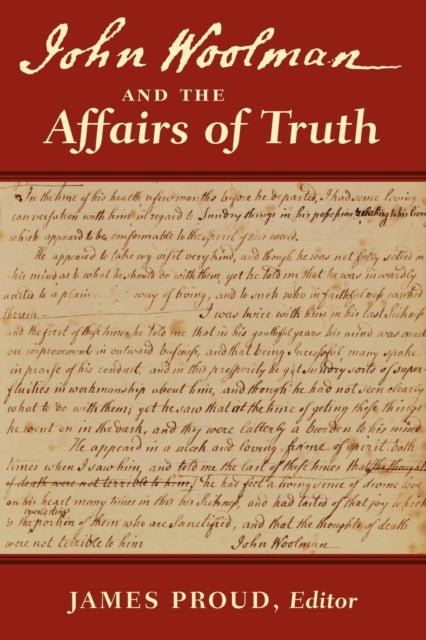 John Woolman
AND THE
Affairs of Truth
In the time of his health a few months before he departed, I had some loving
conversation with him in regard to Sundry things in his possession relating to his living
which appeared to be conformable to the spirit of this world.
He appeared to take my visit very kind, and though he was not fully setled in
his mind as to what he should do with them, yet he told me that he was inwardly
united to a plain way of living, and to such who in faithfulness walked
therein I was twice with him in his last Sickness
and the first of these times he told me that in his youthful years his mind was much
on improvement in outward business, and that being Successful, many spoke
in praise of his conduct, and in this prosperity he got Sundry sorts of super-
fluities in workmanship about him, and though he had not seen clearly
what to do with them, yet he saw that at the time of geting these things
he went on in the dark, and they were latterly a burden to his mind
He appeared in a meek and loving frame of spirit both
times when I saw him, and told me the last of these times that the thoughts
of death were not terrible to him. He had felt a living sense of divine love
on his heart many times in this his Sickness, and had tasted of that joy which
everlasting
is the portion of them who are Sanctified, and that the thoughts of death
were not terrible to him John Woolman
JAMES PROUD, Editor